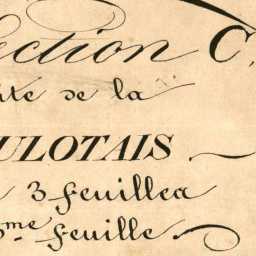 ection C.
ite de la
ULOTAIS
3 feuilles
3me. feuille